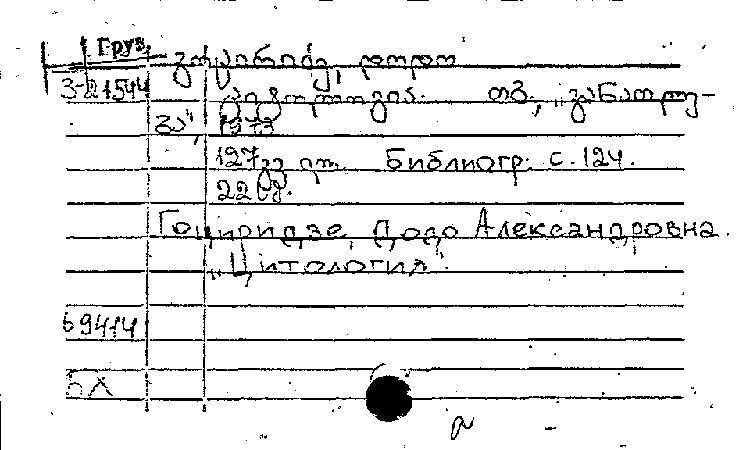 Груз.
გოცირიძე, დოდო
З-21544
ციტოლოგია. თბ., „განათლე-
ბა“, 1973
127 გვ. Библиогр: с. 124.
22 კ.
Гоциридзе, Додо Александровна.
„Цитология“.
69414
БХ